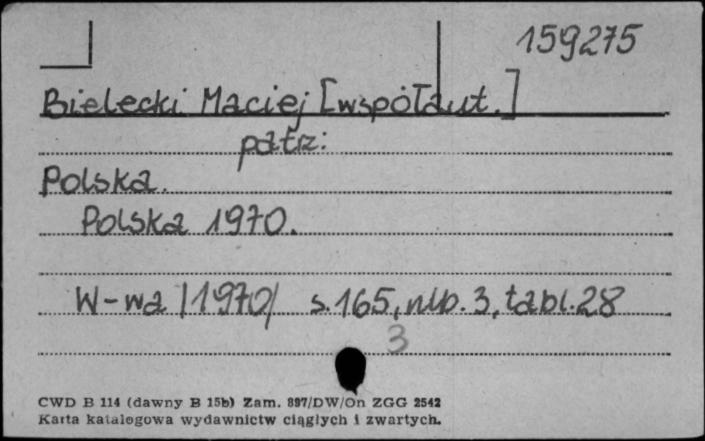 159275
Bielecki Maciej [współaut.]
patrz:
Polska.
Polska 1970.
W-wa /1970/ s.165, nlb. 3, tabl. 28
3
CWD B 114 (dawny B 15b) Zam. 897/DW/On ZGG 2542
Karta katalogowa wydawnictw ciągłych i zwartych.